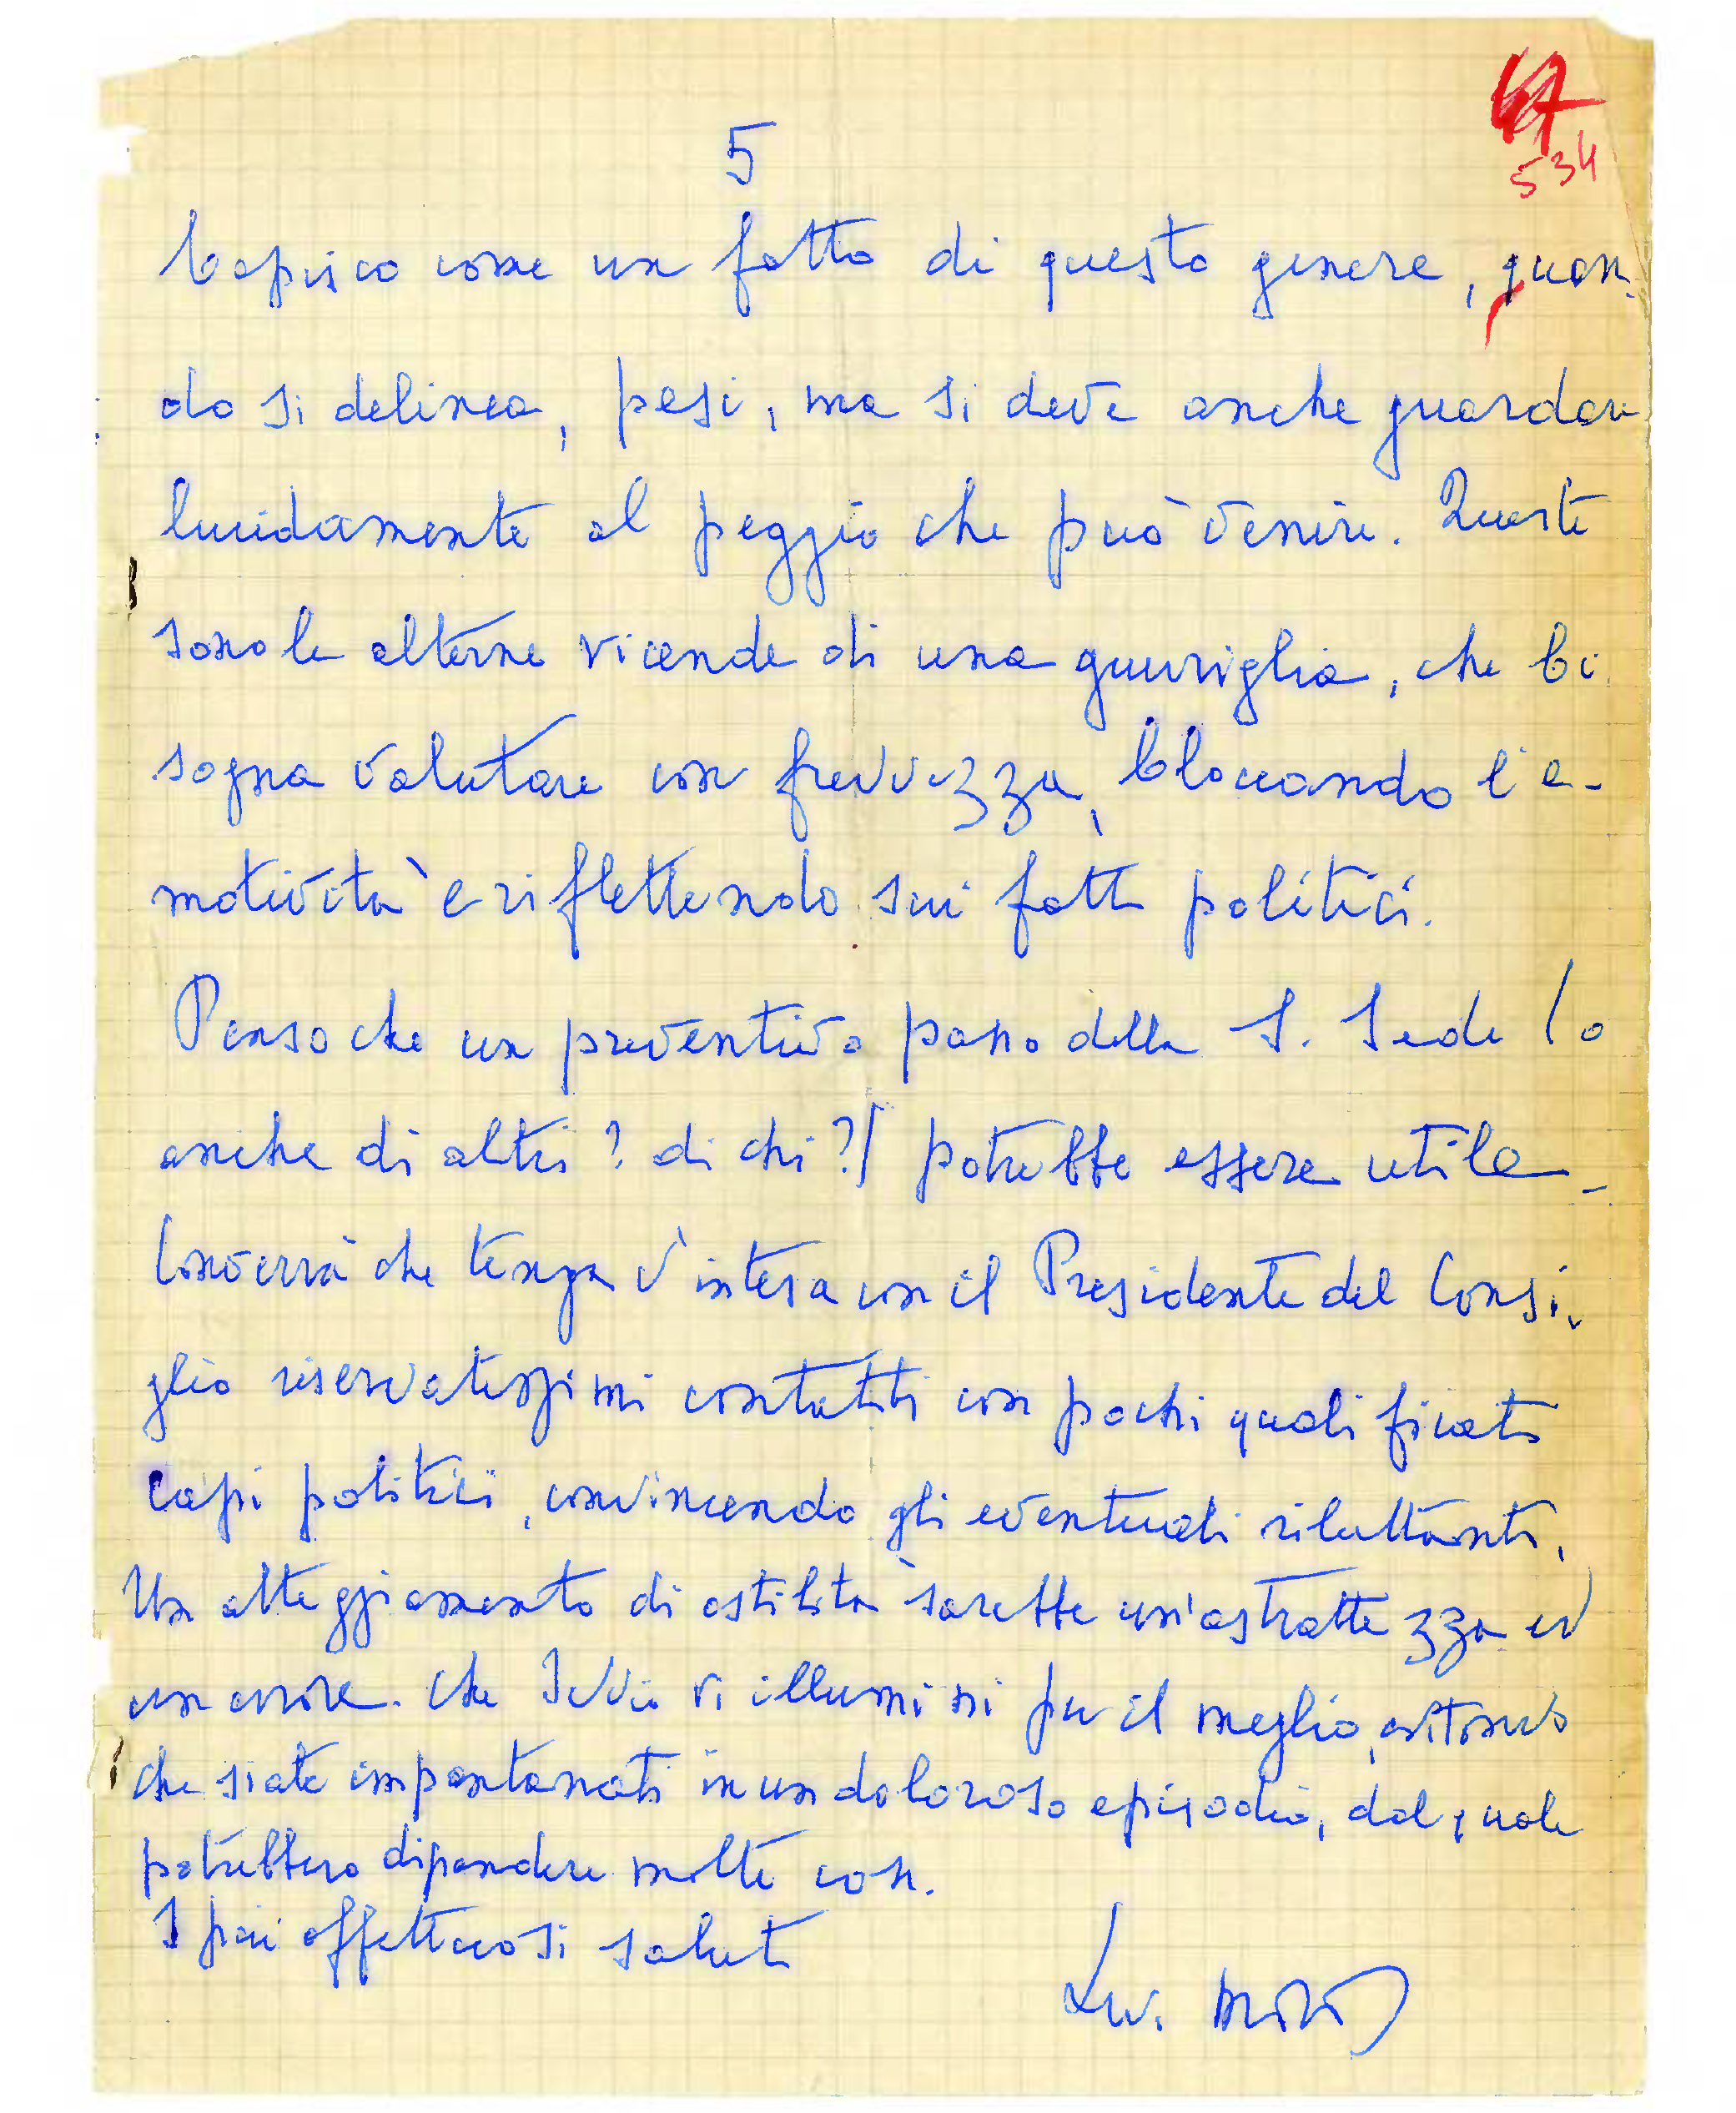 5
534
Capisco come un fatto di questo genere, quan-
do si delinea, pesi, ma si deve anche guardare
lucidamente al peggio che può venire. Queste
sono le alterne vicende di una guerriglia, che bi-
sogna valutare con freddezza, bloccando l'e-
motività e riflettendo sui fatti politici.
Penso che un preventivo passo della S. Sede (o
anche di altri? di chi?) potrebbe essere utile.
Converrà che tenga d'intesa con il Presidente del Consi-
glio riservatissimi contatti con pochi qualificati
capi politici, convincendo gli eventuali riluttanti.
Un atteggiamento di ostilità sarebbe un'astrattezza ed
un errore. Che Iddio vi illumini per il meglio, evitando
che siate impantanati in un doloroso episodio, dal quale
potrebbero dipendere molte cose.
I più affettuosi saluti
Moro